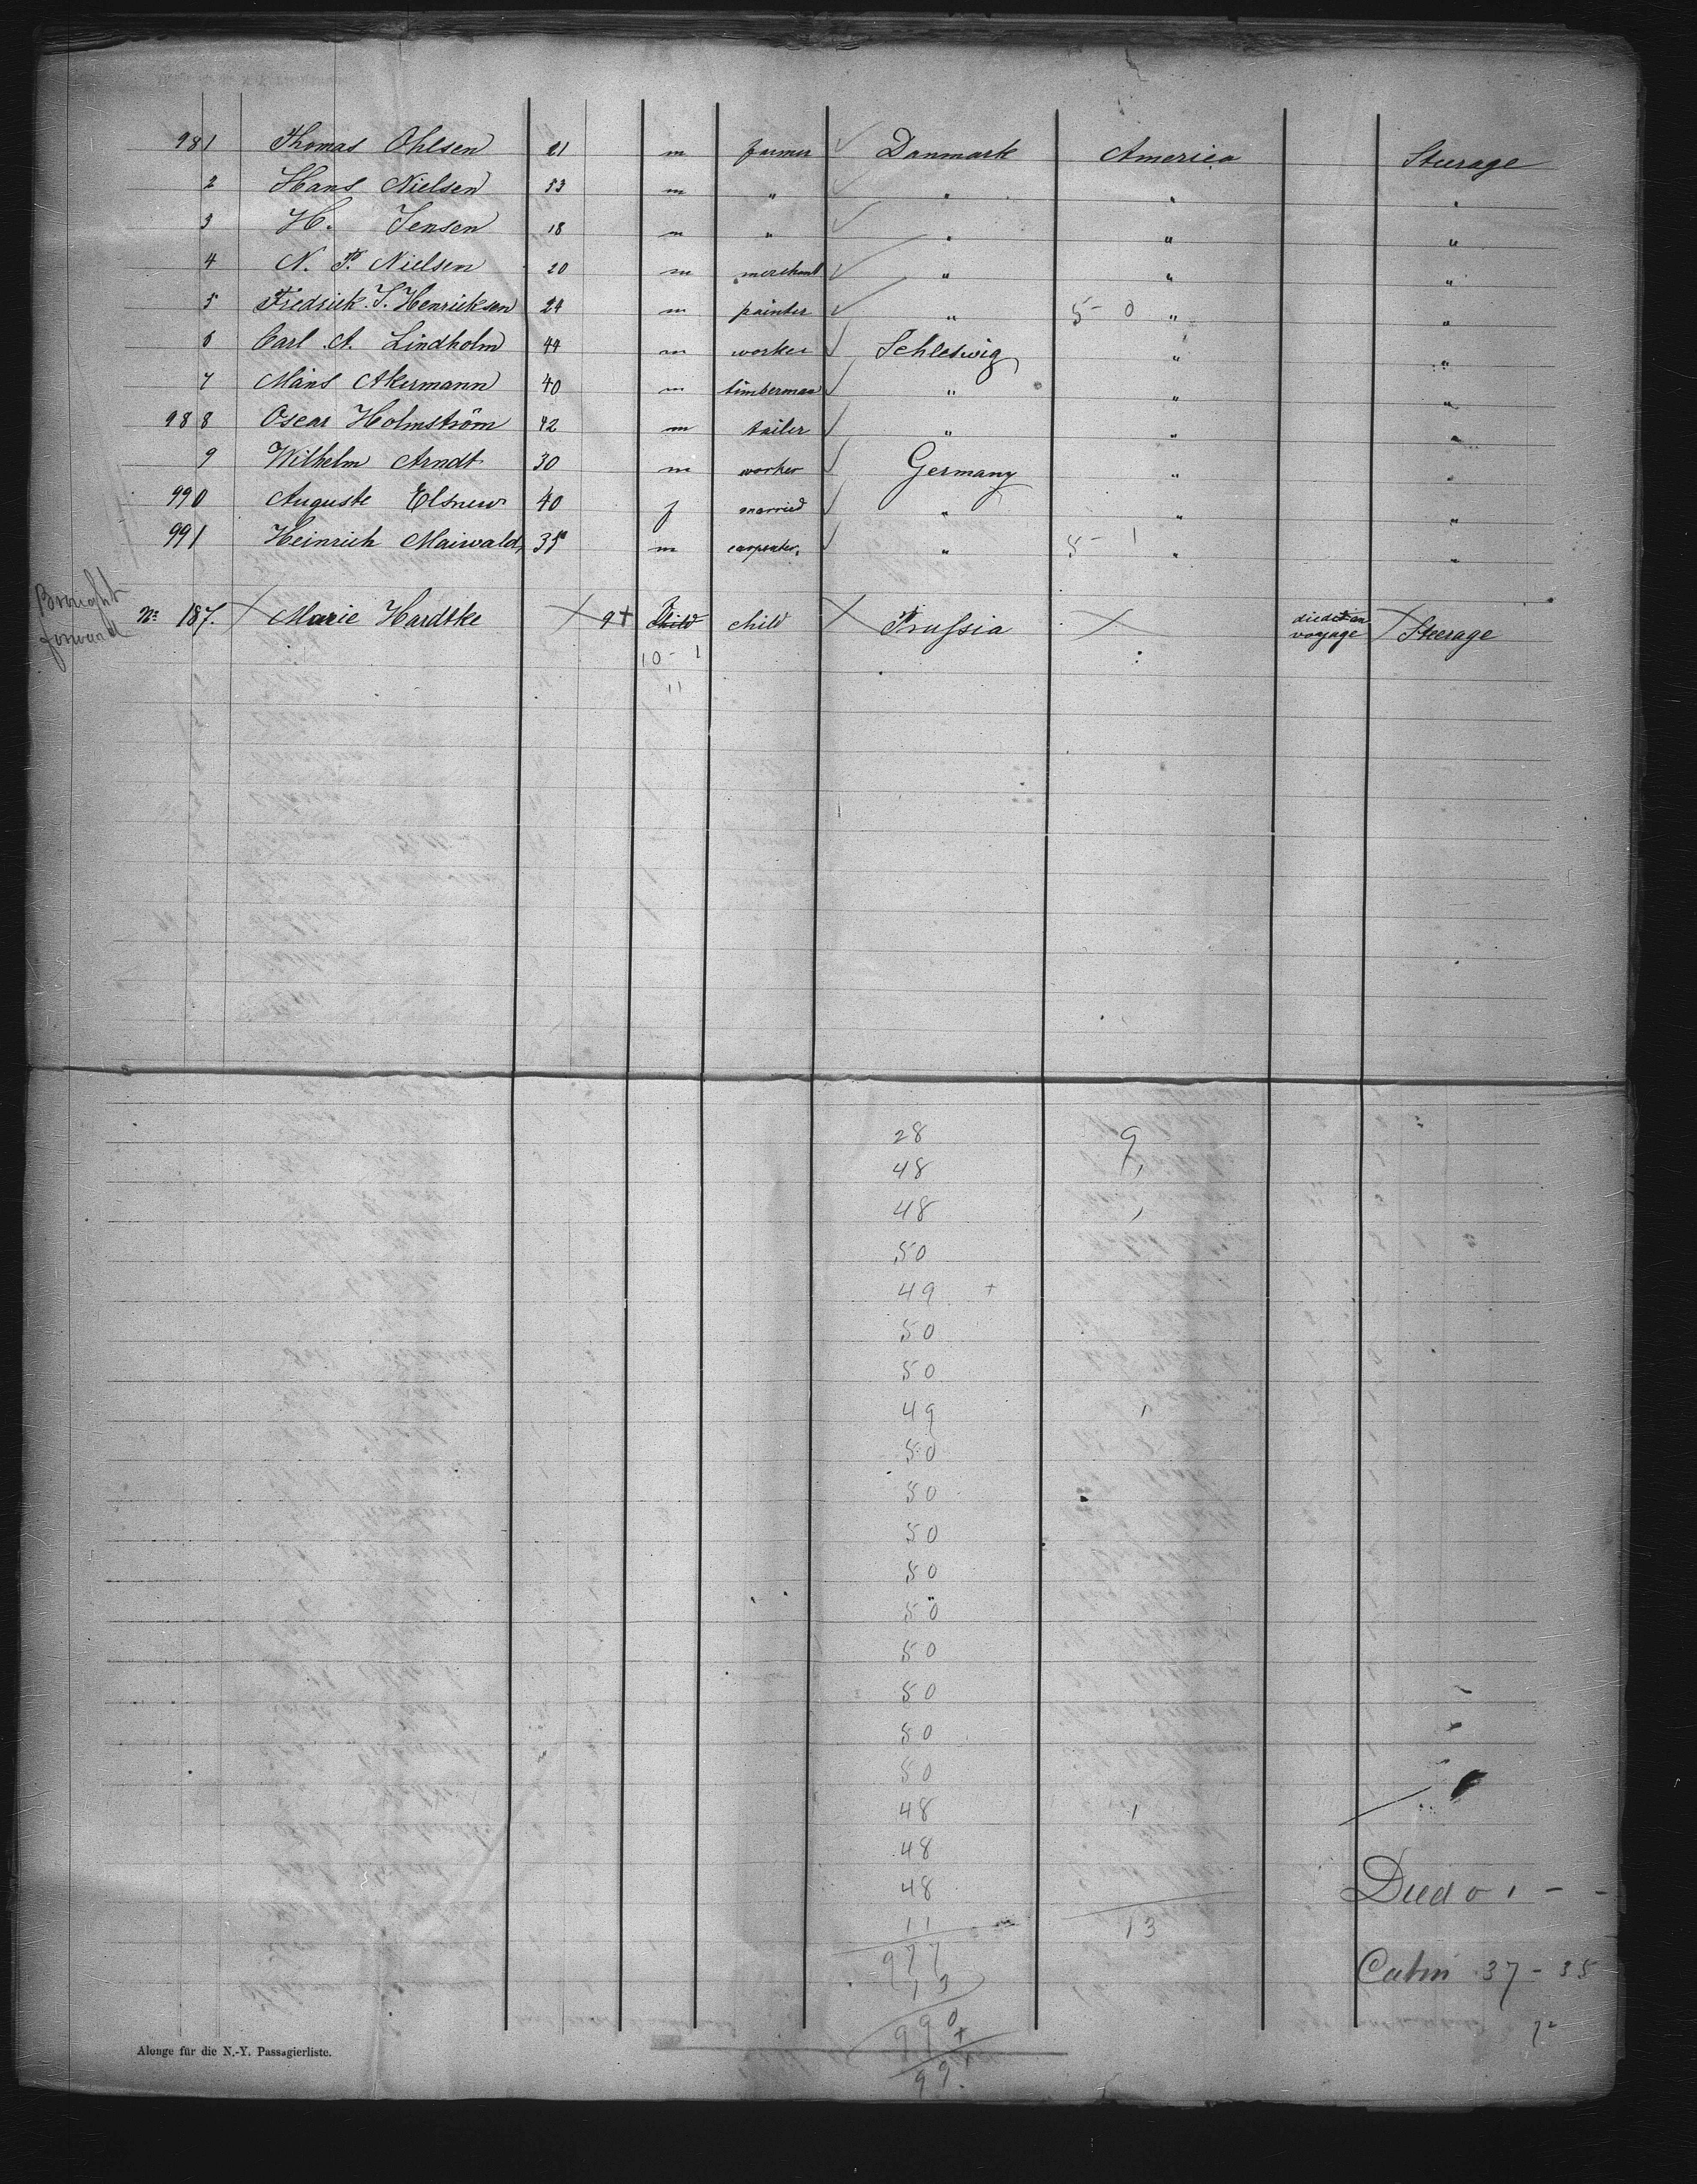 981 Thomas Ohlsen 21 m farmer ✓ Danmark America Steerage
2 Hans Nielsen 53 m " ✓ " " "
3 H. Jensen 18 m " ✓ " " "
4 N. P. Nielsen 20 m merchant ✓ " " "
5 Fredrick J. Henricksen 24 m painter ✓ " 5-0 " "
6 Carl A. Lindholm 44 m worker ✓ Schleswig " "
7 Måns Akermann 40 m timberman ✓ " " "
988 Oscar Holmström 42 m tailer ✓ " " "
9 Wilhelm Arndt 30 m worker ✓ Germany " "
990 Auguste 40 f married ✓ " " "
991 Heinrich Maiwald 35 m carpenter ✓ " 5-1 " "
Brought
forward
No. 187. X Marie Hardtke X 9+ child X Prussia X died on voyage X Steerage
10-1
11
28 9
48 ,
48 ,
50
49 +
50
50
49 ,
50
50
50
50
50
50
50
50
50
48 ,
48
48 Died 0 1 - -
11 13
977
13 Cabin 37-35
990
72
Alonge für die N.-Y. Passagierliste.
99.